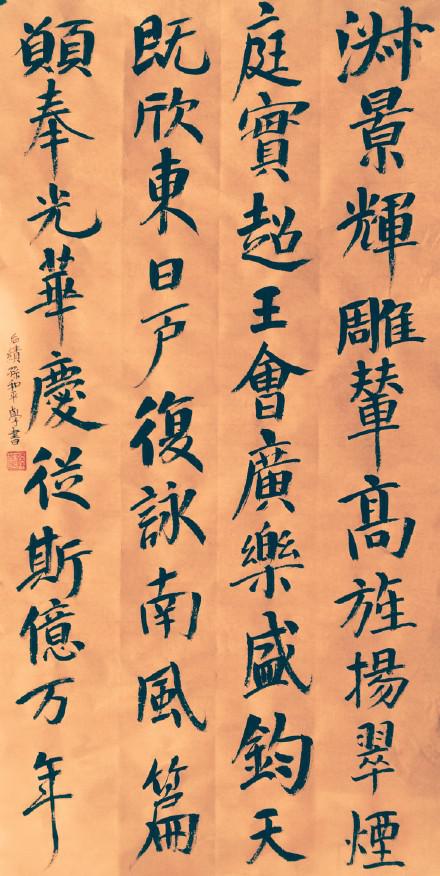 淑景輝雕輦高旌揚翠煙
庭實超王會廣樂盛鈞天
既欣東日戶復詠南風篇
願奉光華慶從斯億万年
孫和平學書